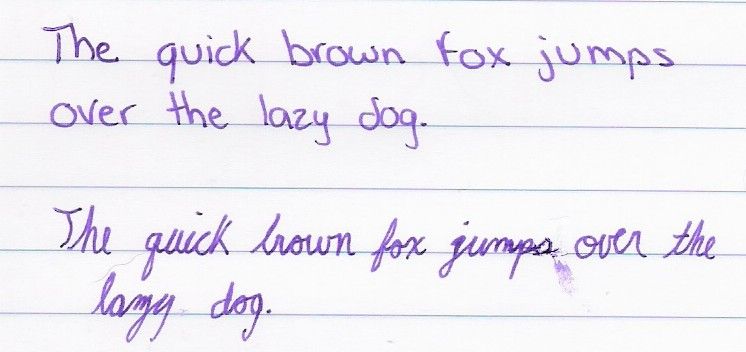 The quick brown fox jumps
over the lazy dog.
The quick brown fox jumps over the
lazy dog.